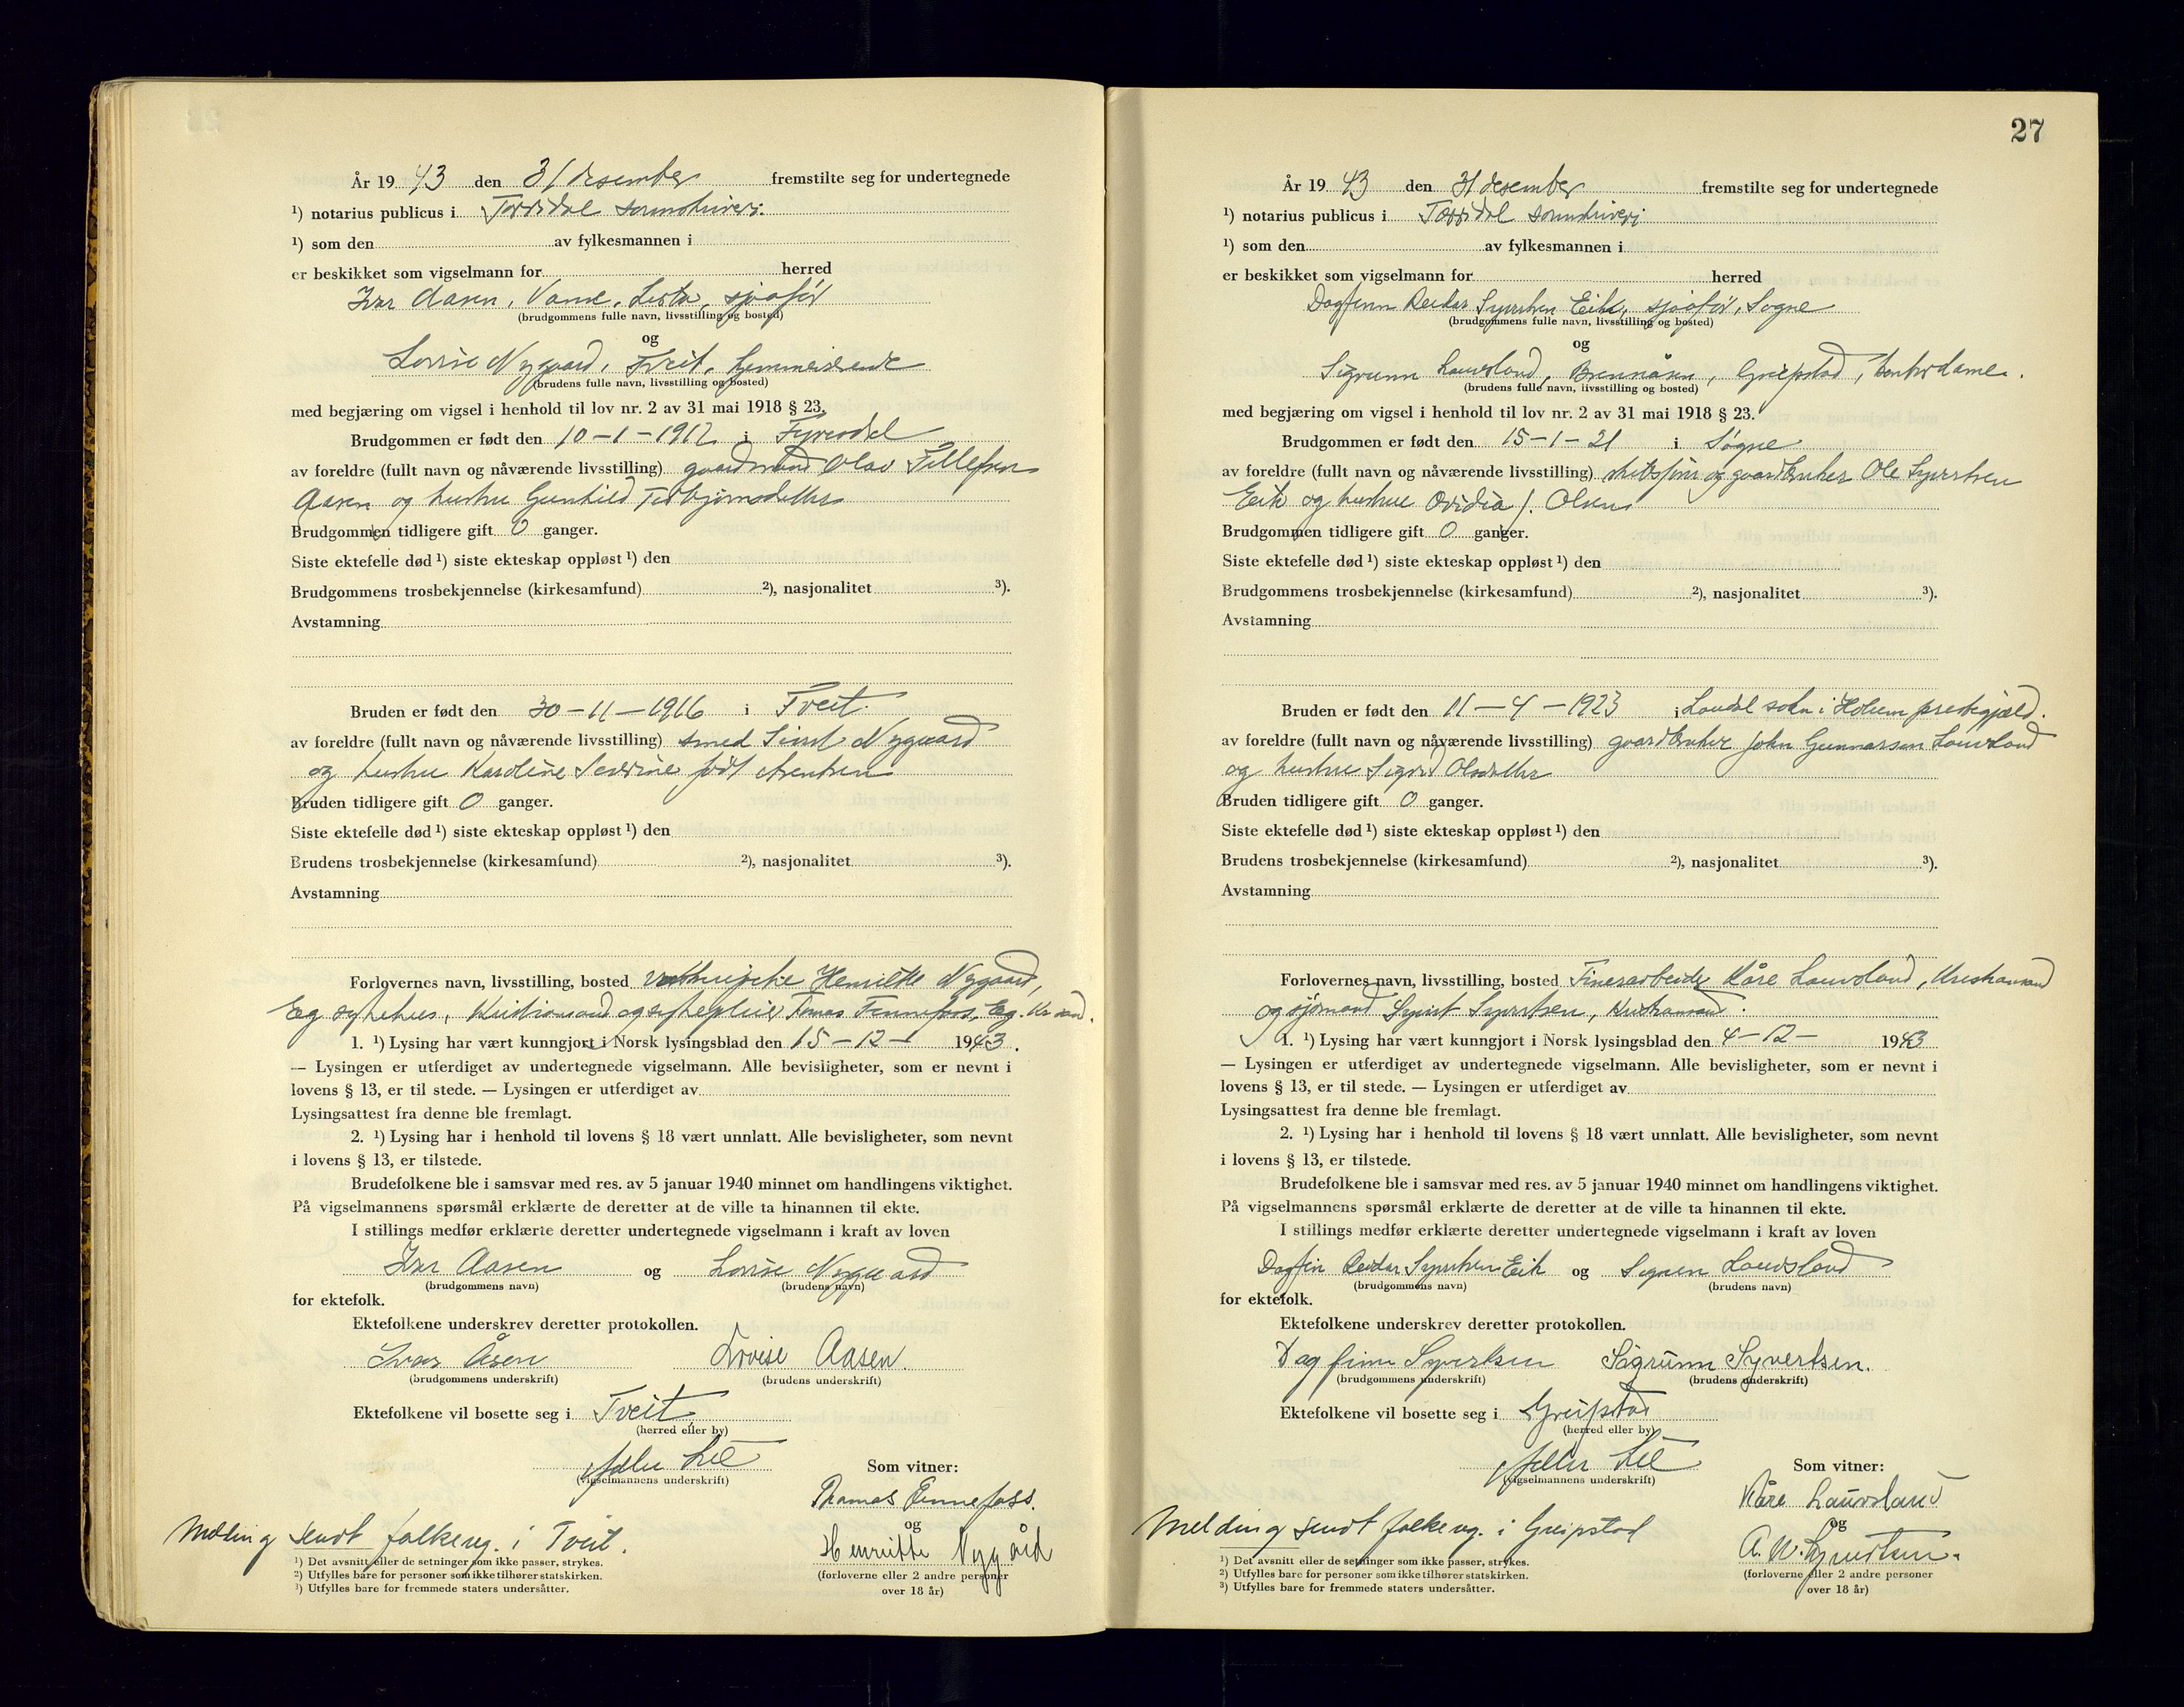 År 19 43 den 31 desember fremstilte seg for undertegnede
¹) notarius publicus i Torridal sorenskriveri.
¹) som den av fylkesmannen i
er beskikket som vigselmann for herred
Ivar Aasen, Vanse, Lista, sjåfør
(brudgommens fulle navn, livsstilling og bosted)
og
Lovise Nygaard, Tveit, hjemmeværende
(brudens fulle navn, livsstilling og bosted)
med begjæring om vigsel i henhold til lov nr. 2 av 31 mai 1918 § 23.
Brudgommen er født den 10-1-1912 i Fyresdal
av foreldre (fullt navn og nåværende livsstilling) gaardmand Olav Tellefsen
Aasen og hustru Gunhild Torbjørnsdatter
Brudgommen tidligere gift 0 ganger.
Siste ektefelle død ¹) siste ekteskap oppløst ¹) den
Brudgommens trosbekjennelse (kirkesamfund) ²), nasjonalitet ³).
Avstamning
Bruden er født den 30-11-1916 i Tveit.
av foreldre (fullt navn og nåværende livsstilling) smed Nygaard
og hustru Karoline Severine født Arentsen
Bruden tidligere gift 0 ganger.
Siste ektefelle død ¹) siste ekteskap oppløst ¹) den
Brudens trosbekjennelse (kirkesamfund) ²), nasjonalitet ³).
Avstamning
Forlovernes navn, livsstilling, bosted Henriette Nygaard,
Eg sykehus, Kristiansand og sykepleier Tomas Fennefoss, Eg. Kr.sand.
1. ¹) Lysing har vært kunngjort i Norsk lysingsblad den 15-12- 1943.
— Lysingen er utferdiget av undertegnede vigselmann. Alle bevisligheter, som er nevnt i
lovens § 13, er til stede. — Lysingen er utferdiget av
Lysingsattest fra denne ble fremlagt.
2. ¹) Lysing har i henhold til lovens § 18 vært unnlatt. Alle bevisligheter, som nevnt
i lovens § 13, er tilstede.
Brudefolkene ble i samsvar med res. av 5 januar 1940 minnet om handlingens viktighet.
På vigselmannens spørsmål erklærte de deretter at de ville ta hinannen til ekte.
I stillings medfør erklærte deretter undertegnede vigselmann i kraft av loven
Ivar Aasen og Lovise Nygaard
(brudgommens navn) (brudens navn)
for ektefolk.
Ektefolkene underskrev deretter protokollen.
Ivar Åsen Lovise Aasen.
(brudgommens underskrift) (brudens underskrift)
Ektefolkene vil bosette seg i Tveit
(herred eller by)
(vigselmannens underskrift)
Som vitner:
Thomas Fennefoss.
og
Henriette Nygård
(forloverne eller 2 andre personer
over 18 år)
Melding sendt folkereg. i Tveit.
¹) Det avsnitt eller de setninger som ikke passer, strykes.
²) Utfylles bare for personer som ikke tilhører statskirken.
³) Utfylles bare for fremmede staters undersåtter.
27
År 19 43 den 31 desember fremstilte seg for undertegnede
¹) notarius publicus i Torridal sorenskriveri
¹) som den av fylkesmannen i
er beskikket som vigselmann for herred
Dagfinn Reidar Syvertsen Eik, sjåfør, Søgne
(brudgommens fulle navn, livsstilling og bosted)
og
Sigrunn Lauvsland, Brennåsen, Greipstad, kontordame.
(brudens fulle navn, livsstilling og bosted)
med begjæring om vigsel i henhold til lov nr. 2 av 31 mai 1918 § 23.
Brudgommen er født den 15-1-21 i Søgne
av foreldre (fullt navn og nåværende livsstilling) og gaardbruker Ole Syvertsen
Eik og hustru Ovidia f. Olsen
Brudgommen tidligere gift 0 ganger.
Siste ektefelle død ¹) siste ekteskap oppløst ¹) den
Brudgommens trosbekjennelse (kirkesamfund) ²), nasjonalitet ³).
Avstamning
Bruden er født den 11-4-1923 i Laudal sokn i Holum prestegjæld.
av foreldre (fullt navn og nåværende livsstilling) gaardbruker John Gunnarsen Lauvsland
og hustru Sigrid Olsdatter
Bruden tidligere gift 0 ganger.
Siste ektefelle død ¹) siste ekteskap oppløst ¹) den
Brudens trosbekjennelse (kirkesamfund) ²), nasjonalitet ³).
Avstamning
Forlovernes navn, livsstilling, bosted Finerarbeider Kåre Lauvsland, Kristiansand
og sjømand Syvert Syvertsen, Kristiansand.
1. ¹) Lysing har vært kunngjort i Norsk lysingsblad den 4-12- 1943
— Lysingen er utferdiget av undertegnede vigselmann. Alle bevisligheter, som er nevnt i
lovens § 13, er til stede. — Lysingen er utferdiget av
Lysingsattest fra denne ble fremlagt.
2. ¹) Lysing har i henhold til lovens § 18 vært unnlatt. Alle bevisligheter, som nevnt
i lovens § 13, er tilstede.
Brudefolkene ble i samsvar med res. av 5 januar 1940 minnet om handlingens viktighet.
På vigselmannens spørsmål erklærte de deretter at de ville ta hinannen til ekte.
I stillings medfør erklærte deretter undertegnede vigselmann i kraft av loven
Dagfin Reidar Syvertsen Eik og Lauvsland
(brudgommens navn) (brudens navn)
for ektefolk.
Ektefolkene underskrev deretter protokollen.
Dagfinn Syvertsen Sigrunn Syvertsen.
(brudgommens underskrift) (brudens underskrift)
Ektefolkene vil bosette seg i Greipstad
(herred eller by)
(vigselmannens underskrift)
Som vitner:
Kåre Lauvsland
og
Syvertsen.
(forloverne eller 2 andre personer
over 18 år)
Melding sendt folkereg. i Greipstad
¹) Det avsnitt eller de setninger som ikke passer, strykes.
²) Utfylles bare for personer som ikke tilhører statskirken.
³) Utfylles bare for fremmede staters undersåtter.